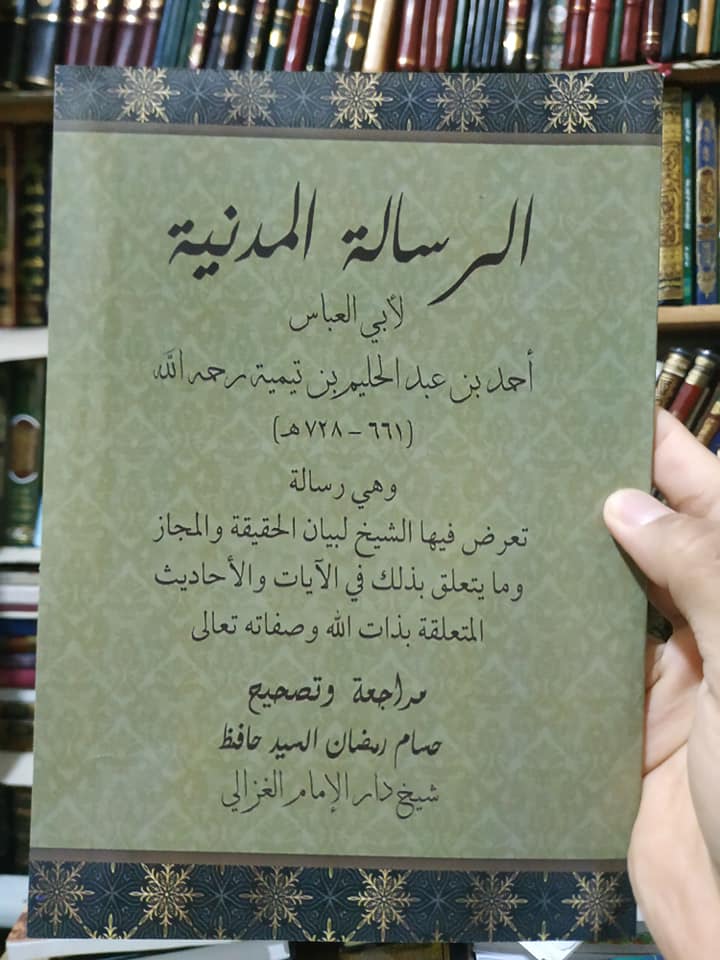 الرسالة المدنية
لأبي العباس
أحمد بن عبد الحليم بن تيمية رحمه الله
(٦٦١ – ٧٢٨ هـ)
وهي رسالة
تعرض فيها الشيخ لبيان الحقيقة والمجاز
وما يتعلق بذلك في الآيات والأحاديث
المتعلقة بذات الله وصفاته تعالى
مراجعة وتصحيح
حسام رمضان السيد حافظ
شيخ دار الإمام الغزالي